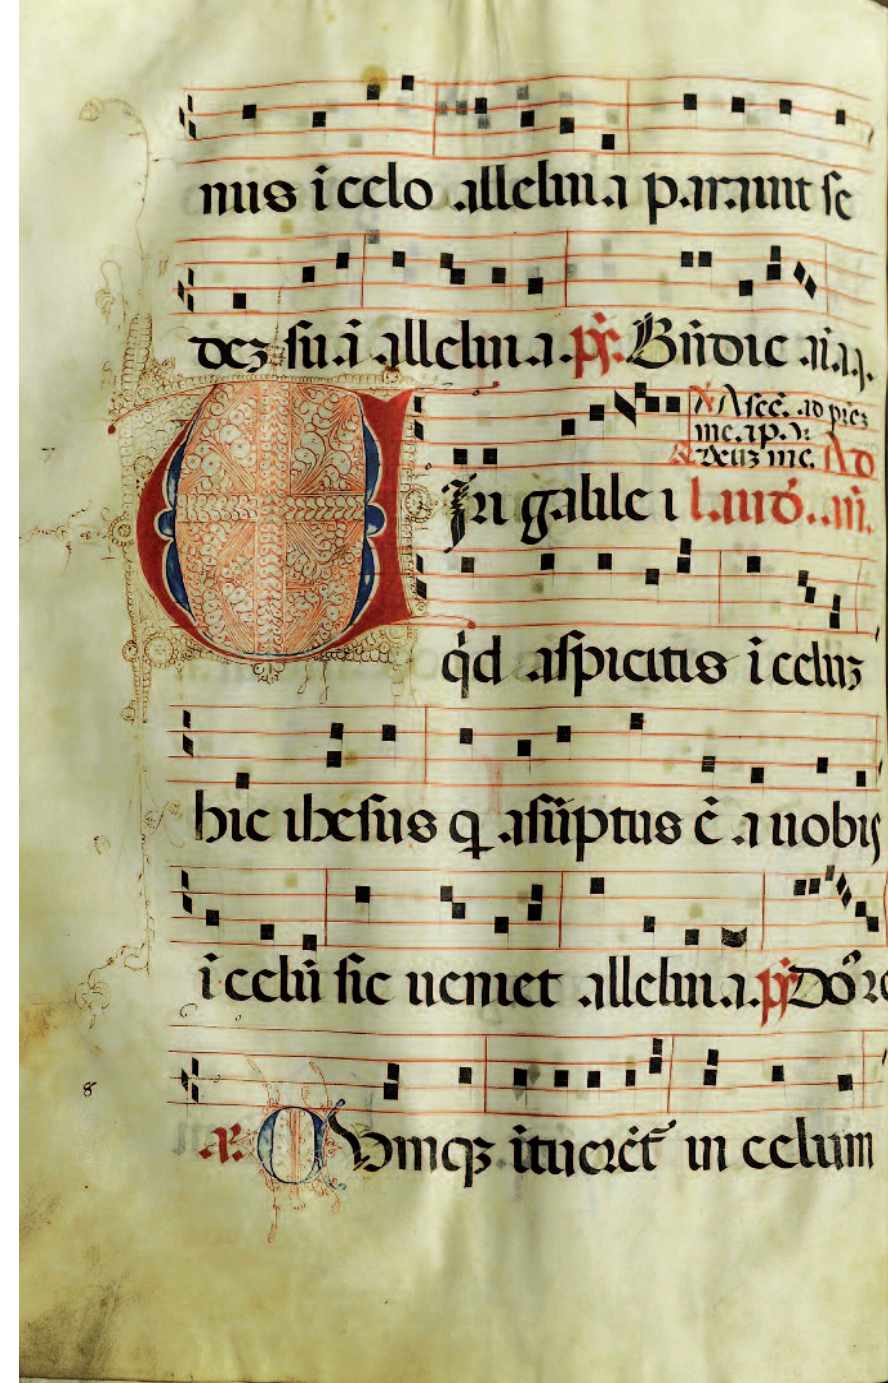 nus i celo alleluia parauit se
dez suā alleluia. ps. Bñdic aīa.
Ascē. ad prēz
me. ap. v.
deuz me. Ad
Uiri galilei laud. añ.
qd aspicitis i celuz
hic ihesus q asūptus ē a uobis
i celū sic ueniet alleluia. ps Do
añ. Cumqz ituerēt in celum
8